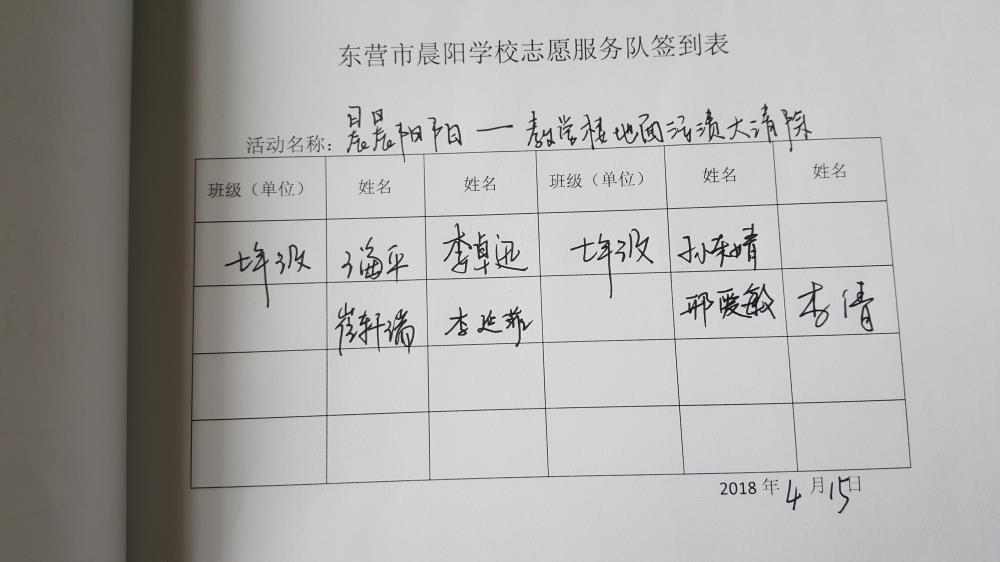 东营市晨阳学校志愿服务队签到表
活动名称：晨晨阳阳一教学楼地面污渍大清除
班级（单位） 姓名 姓名 班级（单位） 姓名 姓名
七年级 李卓迅 七年级 孙东婧
崔轩瑞 李延菲 邢爱敏 李倩
2018年4月15日